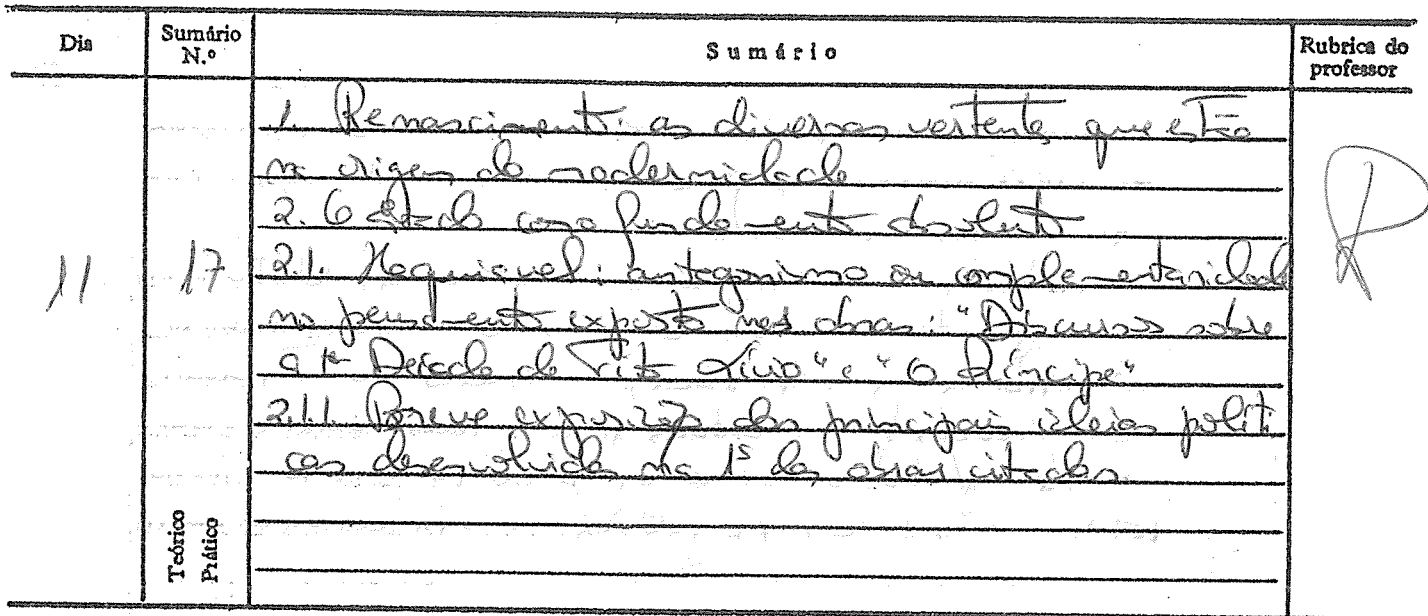 Dia
Sumário N.º
Sumário
Rubrica do professor
1. Renascimento: as diversas vertentes que estão
na origem da modernidade
2. O Estado como fundamento absoluto
11
17
2.1. Maquiavel: antagonismo ou complementaridade
no pensamento exposto nas obras: "Discursos sobre
a 1ª Década de Tito Lívio" e "O Príncipe"
2.1.1. Breve exposição das principais ideias políti
cas desenvolvidas na 1ª das obras citadas.
Teórico
Prático